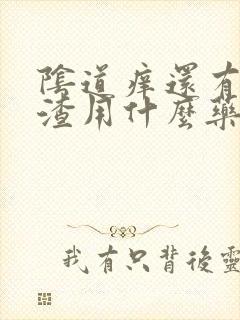 陰道痒還有
渣用什麼藥
我有只背後靈